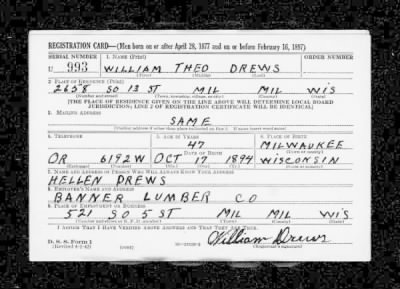 REGISTRATION CARD—(Men born on or after April 28, 1877 and on or before February 16, 1897)
SERIAL NUMBER 1. NAME (Print) ORDER NUMBER
U 993 WILLIAM THEO DREWS
(First) (Middle) (Last)
2. PLACE OF RESIDENCE (Print)
2658 SO 13 ST MIL MIL WIS
(Number and street) (Town, township, village, or city) (County) (State)
[THE PLACE OF RESIDENCE GIVEN ON THE LINE ABOVE WILL DETERMINE LOCAL BOARD
JURISDICTION; LINE 2 OF REGISTRATION CERTIFICATE WILL BE IDENTICAL]
3. MAILING ADDRESS
SAME
[Mailing address if other than place indicated on line 2. If same insert word same]
4. TELEPHONE 5. AGE IN YEARS 6. PLACE OF BIRTH
47 MILWAUKEE
DATE OF BIRTH (Town or county)
OR 6192W OCT 17 1894 WISCONSIN
(Exchange) (Number) (Mo.) (Day) (Yr.) (State or country)
7. NAME AND ADDRESS OF PERSON WHO WILL ALWAYS KNOW YOUR ADDRESS
HELLEN DREWS
8. EMPLOYER'S NAME AND ADDRESS
BANNER LUMBER CO
9. PLACE OF EMPLOYMENT OR BUSINESS
521 SO 5 ST MIL MIL WIS
(Number and street or R. F. D. number) (Town) (County) (State)
I AFFIRM THAT I HAVE VERIFIED ABOVE ANSWERS AND THAT THEY ARE TRUE.
D. S. S. Form 1 William Drews
(Revised 4-1-42) (over) (Registrant's signature)